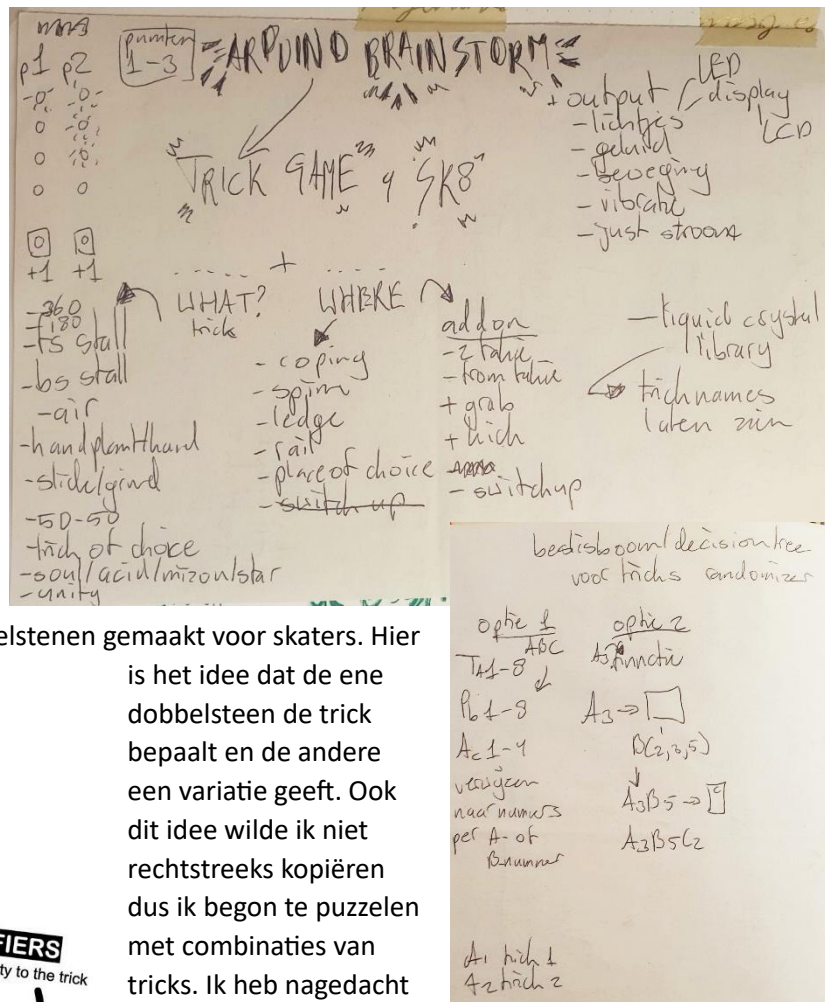 p1 p2
punten
1-3
ARDUINO BRAINSTORM
"TRICK GAME" 4 "SK8"
+ output
LED
display
LCD
- lichtjes
- geluid
- beweging
- vibratie
- just stroom
+1 +1
----- + -----
WHAT?
trick
WHERE
- 360
- 180
- fs stall
- bs stall
- air
- handplant
- slide/grind
- 50-50
- trick of choice
- soul/acid/mizou/star
- unity
- coping
- spine
- ledge
- rail
- place of choice
- switch up
add on
- 2 fakie
- from fakie
+ grab
+ kick
- switchup
- liquid crystal
library
tricknames
laten zien
beslisboom/decision tree
voor tricks randomizer
optie 1
ABC
TA1-8
Pb 1-8
Ac 1-4
verwijzen
naar numers
per A- of
B-nummer
A1 trick 1
A2 trick 2
optie 2
functie
A3 →
B(2,3,5)
A3B5 → C
A3B5C2
elstenen gemaakt voor skaters. Hier
is het idee dat de ene
dobbelsteen de trick
bepaalt en de andere
een variatie geeft. Ook
dit idee wilde ik niet
rechtstreeks kopiëren
dus ik begon te puzzelen
met combinaties van
tricks. Ik heb nagedacht
FIERS
ty to the trick